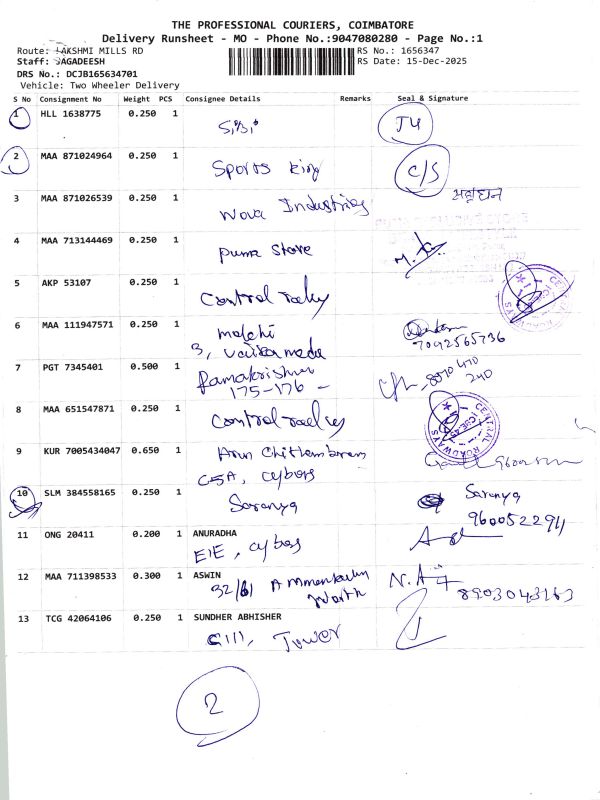 THE PROFESSIONAL COURIERS, COIMBATORE
Delivery Runsheet - MO - Phone No.:9047080280 - Page No.:1
Route: LAKSHMI MILLS RD
RS No.: 1656347
Staff: JAGADEESH
RS Date: 15-Dec-2025
DRS No.: DCJB165634701
Vehicle: Two Wheeler Delivery
S No Consignment No Weight PCS Consignee Details Remarks Seal & Signature
1 HLL 1638775 0.250 1
2 MAA 871024964 0.250 1 Sports King C/S
3 MAA 871026539 0.250 1 Nova Industries
4 MAA 713144469 0.250 1 Puma Store
5 AKP 53107 0.250 1 Control
CENTRAL ROADWAYS
6 MAA 111947571 0.250 1
3,
7042565736
7 PGT 7345401 0.500 1 Ramakrishna
175-176 -
8870 470
240
8 MAA 651547871 0.250 1 Control
CENTRAL ROADWAYS
9 KUR 7005434047 0.650 1 Arun Chittambaram
C5A, Cybors
10 SLM 384558165 0.250 1 Saranya Saranya
9600522911
11 ONG 20411 0.200 1 ANURADHA
E1E, Cybors
12 MAA 711398533 0.300 1 ASWIN
32/61
North
N.A
8903043163
13 TCG 42064106 0.250 1 SUNDHER ABHISHER
Tower
2